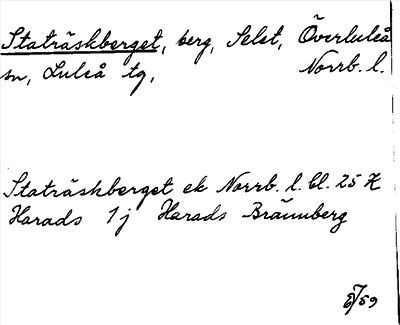 Staträskberget, berg, Selet, Överluleå
sn, Luleå tg, Norrb. l.
Staträskberget ek Norrb. l. bl. 25 H
Harads 1j Harads Brännberg